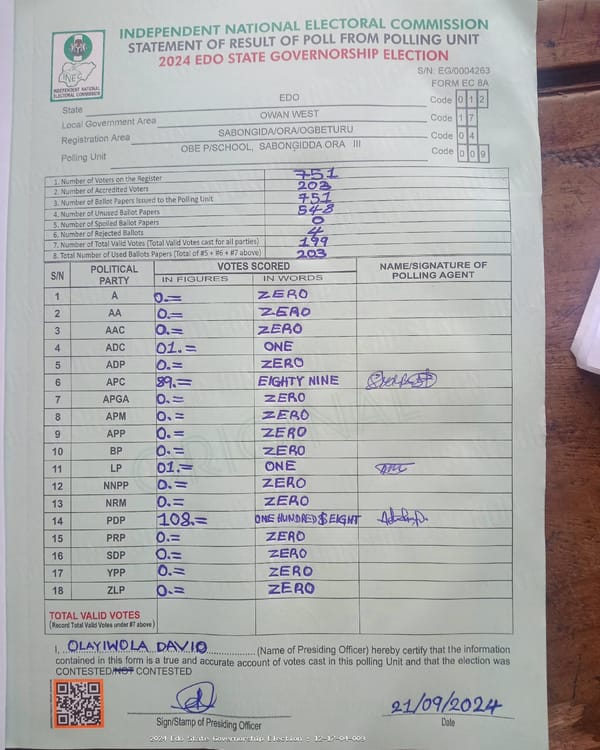 INDEPENDENT NATIONAL ELECTORAL COMMISSION
STATEMENT OF RESULT OF POLL FROM POLLING UNIT
2024 EDO STATE GOVERNORSHIP ELECTION
INEC
INDEPENDENT NATIONAL ELECTORAL COMMISSION
S/N: EG/0004263
FORM EC 8A
State EDO Code 0 1 2
Local Government Area OWAN WEST Code 1 7
Registration Area SABONGIDA/ORA/OGBETURU Code 0 4
Polling Unit OBE P/SCHOOL, SABONGIDDA ORA III Code 0 0 9
1. Number of Voters on the Register 751
2. Number of Accredited Voters 203
3. Number of Ballot Papers Issued to the Polling Unit 751
4. Number of Unused Ballot Papers 548
5. Number of Spoiled Ballot Papers 0
6. Number of Rejected Ballots 4
7. Number of Total Valid Votes (Total Valid Votes cast for all parties) 199
8. Total Number of Used Ballots Papers (Total of #5 + #6 + #7 above) 203
S/N POLITICAL PARTY VOTES SCORED NAME/SIGNATURE OF POLLING AGENT
IN FIGURES IN WORDS
1 A 0.= ZERO
2 AA 0.= ZERO
3 AAC 0.= ZERO
4 ADC 01.= ONE
5 ADP 0.= ZERO
6 APC 89.= EIGHTY NINE
7 APGA 0.= ZERO
8 APM 0.= ZERO
9 APP 0.= ZERO
10 BP 0.= ZERO
11 LP 01.= ONE
12 NNPP 0.= ZERO
13 NRM 0.= ZERO
14 PDP 108.= ONE HUNDRED $ EIGHT
15 PRP 0.= ZERO
16 SDP 0.= ZERO
17 YPP 0.= ZERO
18 ZLP 0.= ZERO
TOTAL VALID VOTES
(Record Total Valid Votes under #7 above)
ORIGINAL
I, OLAYIWOLA DAVID (Name of Presiding Officer) hereby certify that the information
contained in this form is a true and accurate account of votes cast in this polling Unit and that the election was
CONTESTED/NOT CONTESTED
21/09/2024
Sign/Stamp of Presiding Officer Date
2024 Edo State Governorship Election : 12-17-04-009